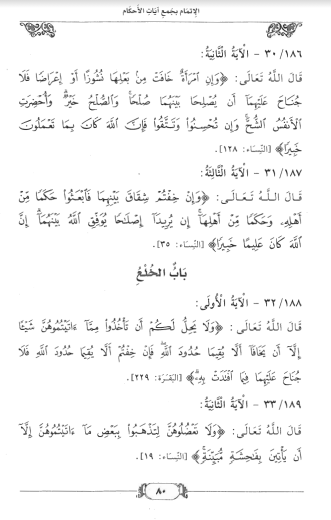 الإلمام بجمع آيات الأحكام
٣٠/١٨٦ - الْآيَةُ الثَّانِيَةُ:
قَالَ اللَّهُ تَعَالَى: ﴿وَإِنِ امْرَأَةٌ خَافَتْ مِنْ بَعْلِهَا نُشُوزًا أَوْ إِعْرَاضًا فَلَا
جُنَاحَ عَلَيْهِمَا أَن يُصْلِحَا بَيْنَهُمَا صُلْحًا وَالصُّلْحُ خَيْرٌ وَأُحْضِرَتِ
الْأَنفُسُ الشُّحَّ وَإِن تُحْسِنُوا وَتَتَّقُوا فَإِنَّ اللَّهَ كَانَ بِمَا تَعْمَلُونَ
خَبِيرًا﴾ [النِّسَاء: ١٢٨].
٣١/١٨٧ - الْآيَةُ الثَّالِثَةُ:
قَالَ اللَّهُ تَعَالَى: ﴿وَإِنْ خِفْتُمْ شِقَاقَ بَيْنِهِمَا فَابْعَثُوا حَكَمًا مِّنْ
أَهْلِهِ، وَحَكَمًا مِّنْ أَهْلِهَا إِن يُرِيدَا إِصْلَاحًا يُوَفِّقِ اللَّهُ بَيْنَهُمَا إِنَّ
اللَّهَ كَانَ عَلِيمًا خَبِيرًا﴾ [النِّسَاء: ٣٥].
بَابُ الْخُلْعِ
٣٢/١٨٨ - الْآيَةُ الْأُولَى:
قَالَ اللَّهُ تَعَالَى: ﴿وَلَا يَحِلُّ لَكُمْ أَن تَأْخُذُوا مِمَّا ءَاتَيْتُمُوهُنَّ شَيْئًا
إِلَّا أَن يَخَافَا أَلَّا يُقِيمَا حُدُودَ اللَّهِ فَإِنْ خِفْتُمْ أَلَّا يُقِيمَا حُدُودَ اللَّهِ فَلَا
جُنَاحَ عَلَيْهِمَا فِيمَا افْتَدَتْ بِهِ﴾ [البَقَرَة: ٢٢٩].
٣٣/١٨٩ - الْآيَةُ الثَّانِيَةُ:
قَالَ اللَّهُ تَعَالَى: ﴿وَلَا تَعْضُلُوهُنَّ لِتَذْهَبُوا بِبَعْضِ مَا ءَاتَيْتُمُوهُنَّ إِلَّا
أَن يَأْتِينَ بِفَاحِشَةٍ مُّبَيِّنَةٍ﴾ [النِّسَاء: ١٩].
٨٠